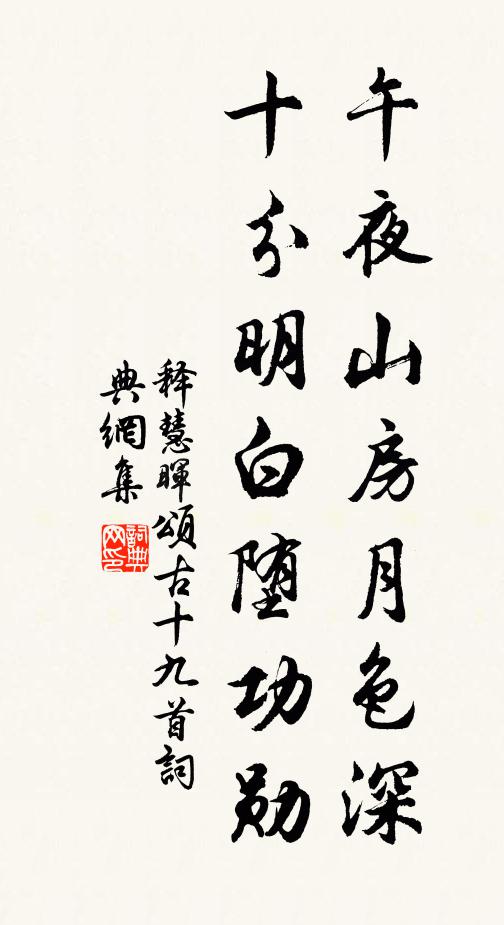 午夜山房月色深
十分明白堕功勋
释慧暉頌古十九首詞
典網集
詞典
网印